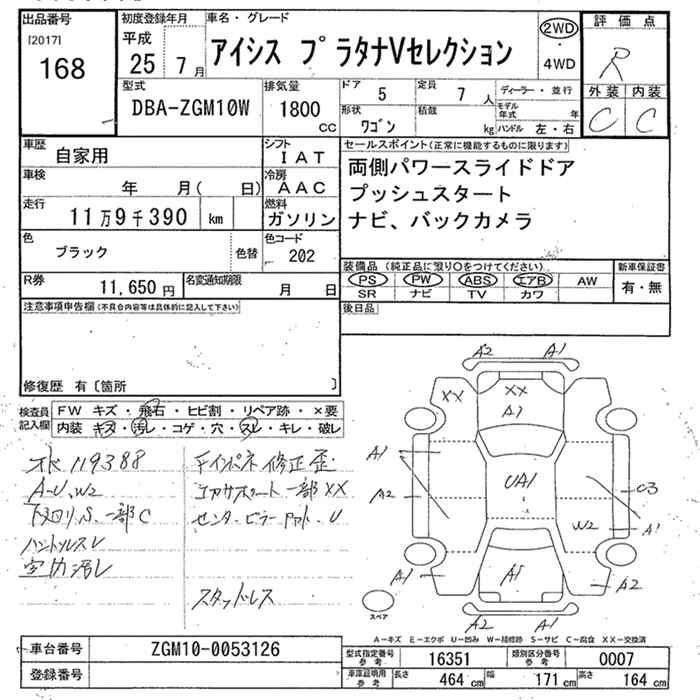 出品番号
[2017]
168
初度登録年月
平成
25 7 月
車名・グレード
アイシス プラタナVセレクション
2WD
・
4WD
評価点
R
外装 内装
C C
型式
DBA-ZGM10W
排気量
1800 CC
ドア 5
定員 7 人
形状 ワゴン
積載 kg
ディーラー・並行
モデル年式 年
ハンドル 左・右
車歴 自家用
シフト IAT
車検 年 月( 日)
冷房 AAC
走行 11万9千390 km
燃料 ガソリン
色 ブラック 色替
色コード 202
R券 11,650 円
名変通知期限 月 日
セールスポイント(正常に機能するものに限ります)
両側パワースライドドア
プッシュスタート
ナビ、バックカメラ
装備品(純正品に限り○をつけてください)
PS PW ABS エアB AW
SR ナビ TV カワ
新車保証書
有・無
後日品
注意事項申告欄(不具合内容等は具体的に記入して下さい)
修復歴 有〔箇所 〕
検査員記入欄
FW キズ・飛石・ヒビ割・リペア跡・×要
内装 キズ・汚レ・コゲ・穴・スレ・キレ・破レ
119388
A-U、W2
下回りS、一部C
ハンドルスレ
室内汚レ
インパネ修正歪
コアサポート一部XX
センターピラー U
スタッドレス
A2 A1
XX XX
A1
A1
A2
UA1
U3
W2 A1
A1
A1
A2
A2 A1
スペア
A−キズ E−エクボ U−凹み W−補修跡 S−サビ C−腐食 XX−交換済
車台番号 ZGM10-0053126
登録番号
型式指定番号参考 16351
類別区分番号参考 0007
車庫証明用参考 長さ 464 cm 幅 171 cm 高さ 164 cm